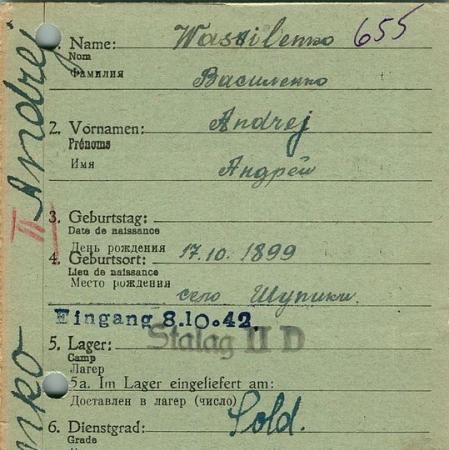 1. Name: Wassilenko 655
Nom
Фамилия Василенко
2. Vornamen: Andrej
Prénoms
Имя Андрей
3. Geburtstag:
Date de naissance
День рождения 17.10.1899
4. Geburtsort:
Lieu de naissance
Место рождения село Шупики.
Eingang 8.10.42.
5. Lager: Stalag II D
Camp
Лагер
5a. Im Lager eingeliefert am:
Доставлен в лагер (число)
6. Dienstgrad: Sold.
Grade
Andrej
II
nko